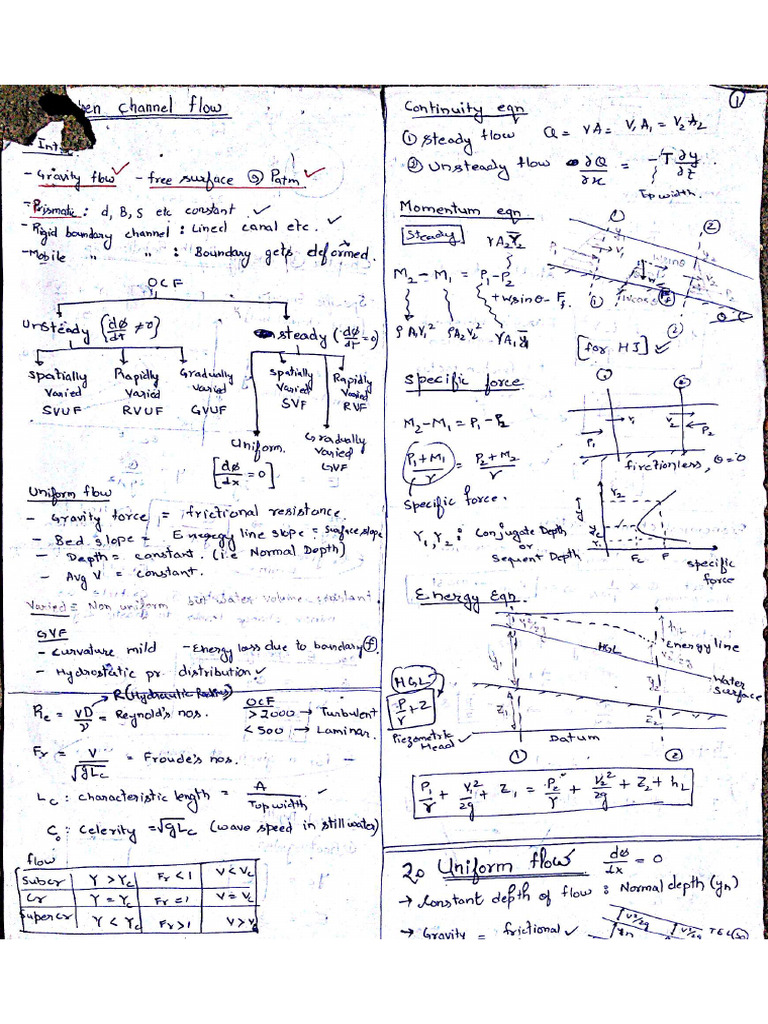 pen channel flow
- Gravity flow - free surface @ Patm
- Prismatic : d, B, S etc constant.
- Rigid boundary channel : Lined canal etc.
- Mobile " " : Boundary gets deformed.
OCF
Unsteady {dø/dt ≠ 0}
steady (dø/dt = 0)
Spatially Varied SVUF
Rapidly Varied RVUF
Gradually Varied GVUF
Spatially Varied SVF
Rapidly Varied RVF
Uniform. [dø/dx = 0]
Gradually Varied GVF
Uniform flow
- Gravity force = frictional resistance.
- Bed slope = Energy line slope = Surface slope
- Depth = constant. (i.e Normal Depth)
- Avg V = constant.
Varied = Non uniform
GVF
- Curvature mild - Energy loss due to boundary (f)
- Hydrostatic pr. distribution
R (Hydraulic Radius)
Re = VD/ν = Reynold's nos.
OCF
> 2000 → Turbulent
< 500 → Laminar.
Fr = V/√gLc = Froude's nos.
Lc : characteristic length = A/Top width
C₀ : Celerity = √gLc (wave speed in still water)
flow
Subcr Y > Yc Fr < 1 V < Vc
Cr Y = Yc Fr = 1 V = Vc
Supercr Y < Yc Fr > 1 V > Vc
①
Continuity eqn
① Steady flow Q = VA = V₁A₁ = V₂A₂
② Unsteady flow ∂Q/∂x = -T ∂y/∂t
Top width.
Momentum eqn
Steady
M₂ - M₁ = P₁ - P₂ + W sinθ - Ff
[for HJ]
Specific force
M₂ - M₁ = P₁ - P₂
(P₁ + M₁)/γ = (P₂ + M₂)/γ
frictionless, θ = 0
Specific force.
Y₁, Y₂ : Conjugate Depth
or
Sequent Depth
Specific force
Energy Eqn.
HGL
Energy line
Water surface
HGL
P/γ + Z
Piezometric Head
Datum
① ②
P₁/γ + V₁²/2g + Z₁ = P₂/γ + V₂²/2g + Z₂ + hL
2. Uniform flow dø/dx = 0
→ Constant depth of flow : Normal depth (yn)
→ Gravity = frictional